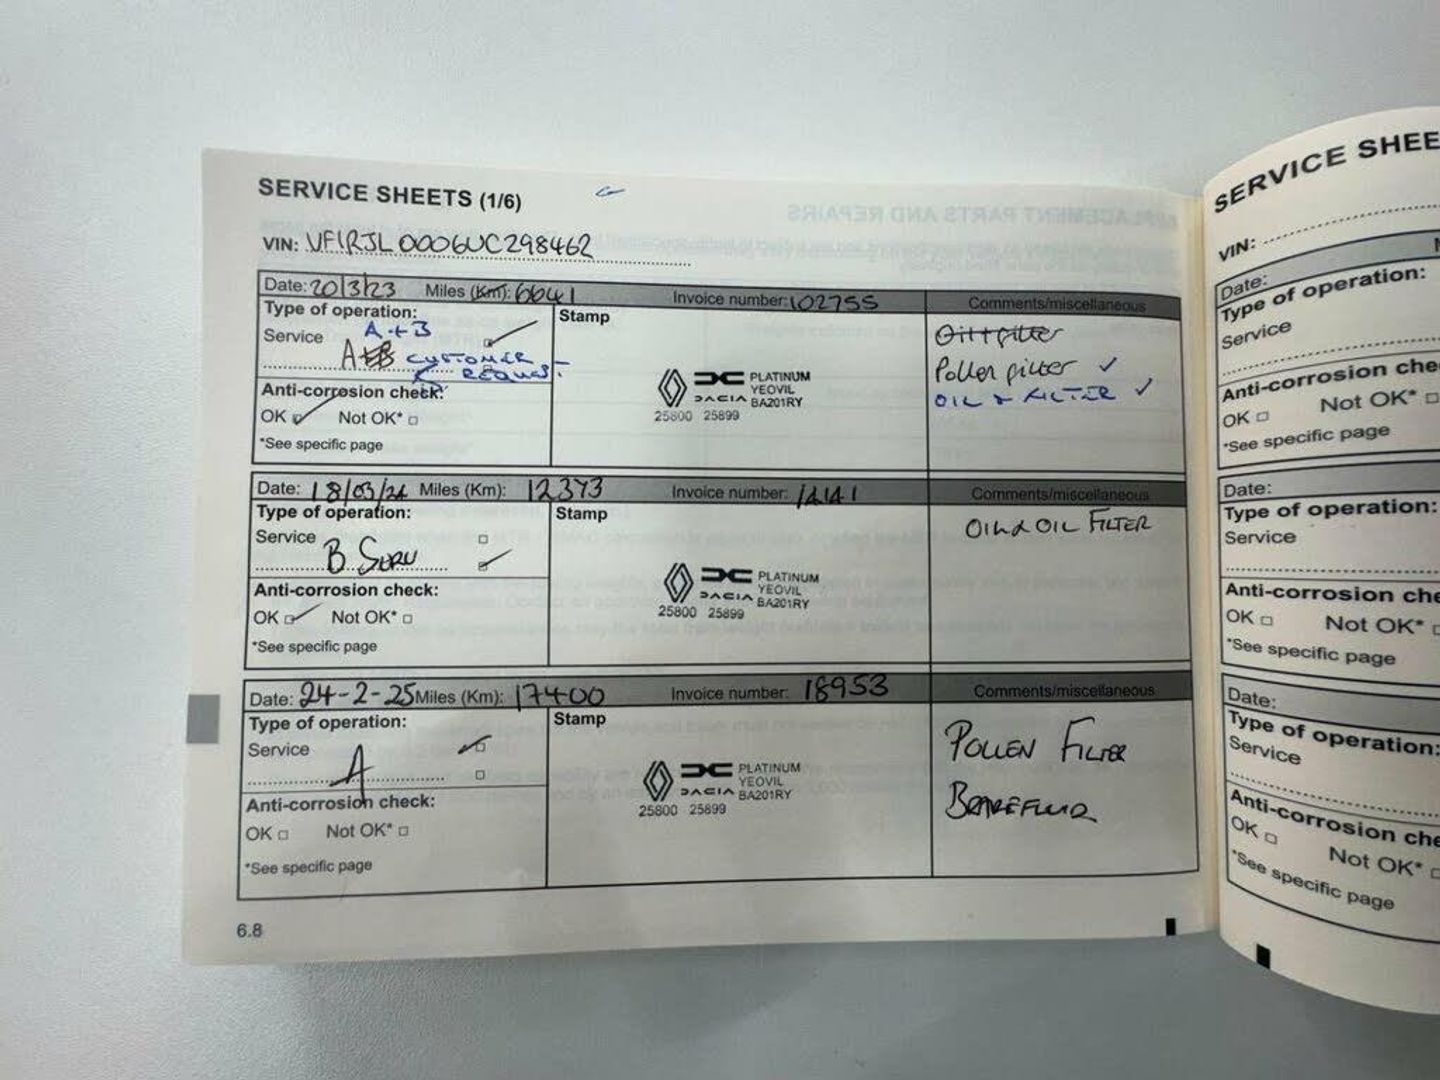 SERVICE SHEETS (1/6)
VIN: VF1RJL0006UC298462
Date: 20/3/23 Miles (Km): 6641 Invoice number: 102755 Comments/miscellaneous
Type of operation:
Service A+B
A+B CUSTOMER
REQUEST
Anti-corrosion check:
OK Not OK*
*See specific page
Stamp
DACIA
PLATINUM
YEOVIL
BA201RY
25800 25899
Oil+filter
Pollen filter ✓
OIL & FILTER ✓
Date: 18/03/24 Miles (Km): 12373 Invoice number: 14141 Comments/miscellaneous
Type of operation:
Service
B SERV
Anti-corrosion check:
OK Not OK*
*See specific page
Stamp
DACIA
PLATINUM
YEOVIL
BA201RY
25800 25899
OIL & OIL FILTER
Date: 24-2-25 Miles (Km): 17400 Invoice number: 18953 Comments/miscellaneous
Type of operation:
Service
A
Anti-corrosion check:
OK Not OK*
*See specific page
Stamp
DACIA
PLATINUM
YEOVIL
BA201RY
25800 25899
POLLEN FILTER
BRAKEFLUID
6.8
SERVICE SHEE
VIN:
Date:
Type of operation:
Service
Anti-corrosion che
OK Not OK*
*See specific page
Date:
Type of operation:
Service
Anti-corrosion che
OK Not OK*
*See specific page
Date:
Type of operation:
Service
Anti-corrosion che
OK Not OK*
*See specific page